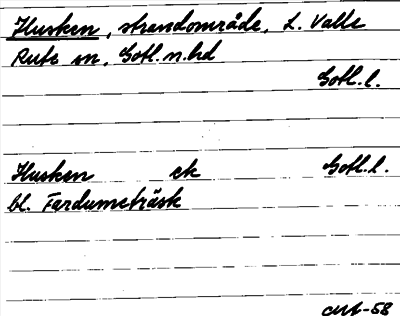 Husken, strandområde, L. Valle
Rute sn, Gotl. n. hd
Gotl. l.
Husken ek Gotl. l.
bl. Fardumeträsk
-58